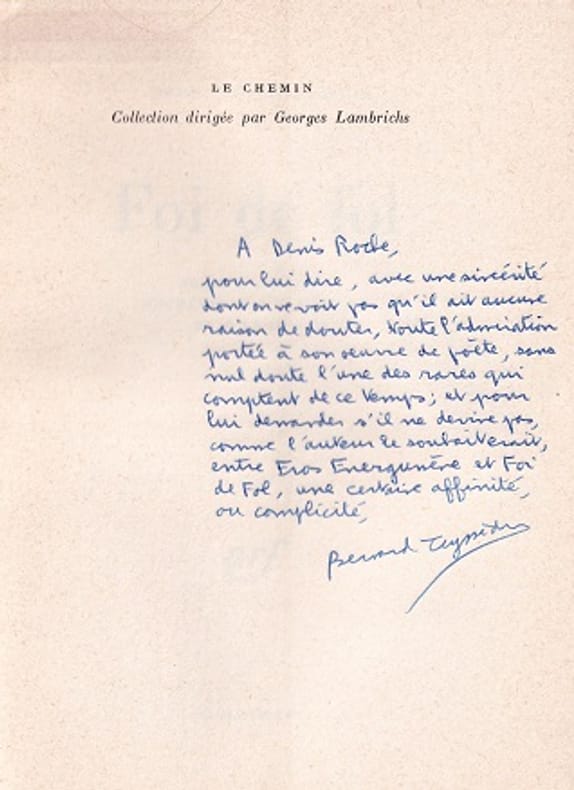 LE CHEMIN
Collection dirigée par Georges Lambrichs
Foi de fol
A Denis Roche,
pour lui dire, avec une sincérité
dont on ne voit pas qu'il ait aucune
raison de douter, toute l'admiration
portée à son oeuvre de poète, sans
nul doute l'une des rares qui
comptent de ce temps; et pour
lui demander s'il ne devine pas,
comme l'auteur le souhaiterait,
entre Eros Energumène et Foi
de Fol, une certaine affinité,
ou complicité,
Bernard Teyssèdre